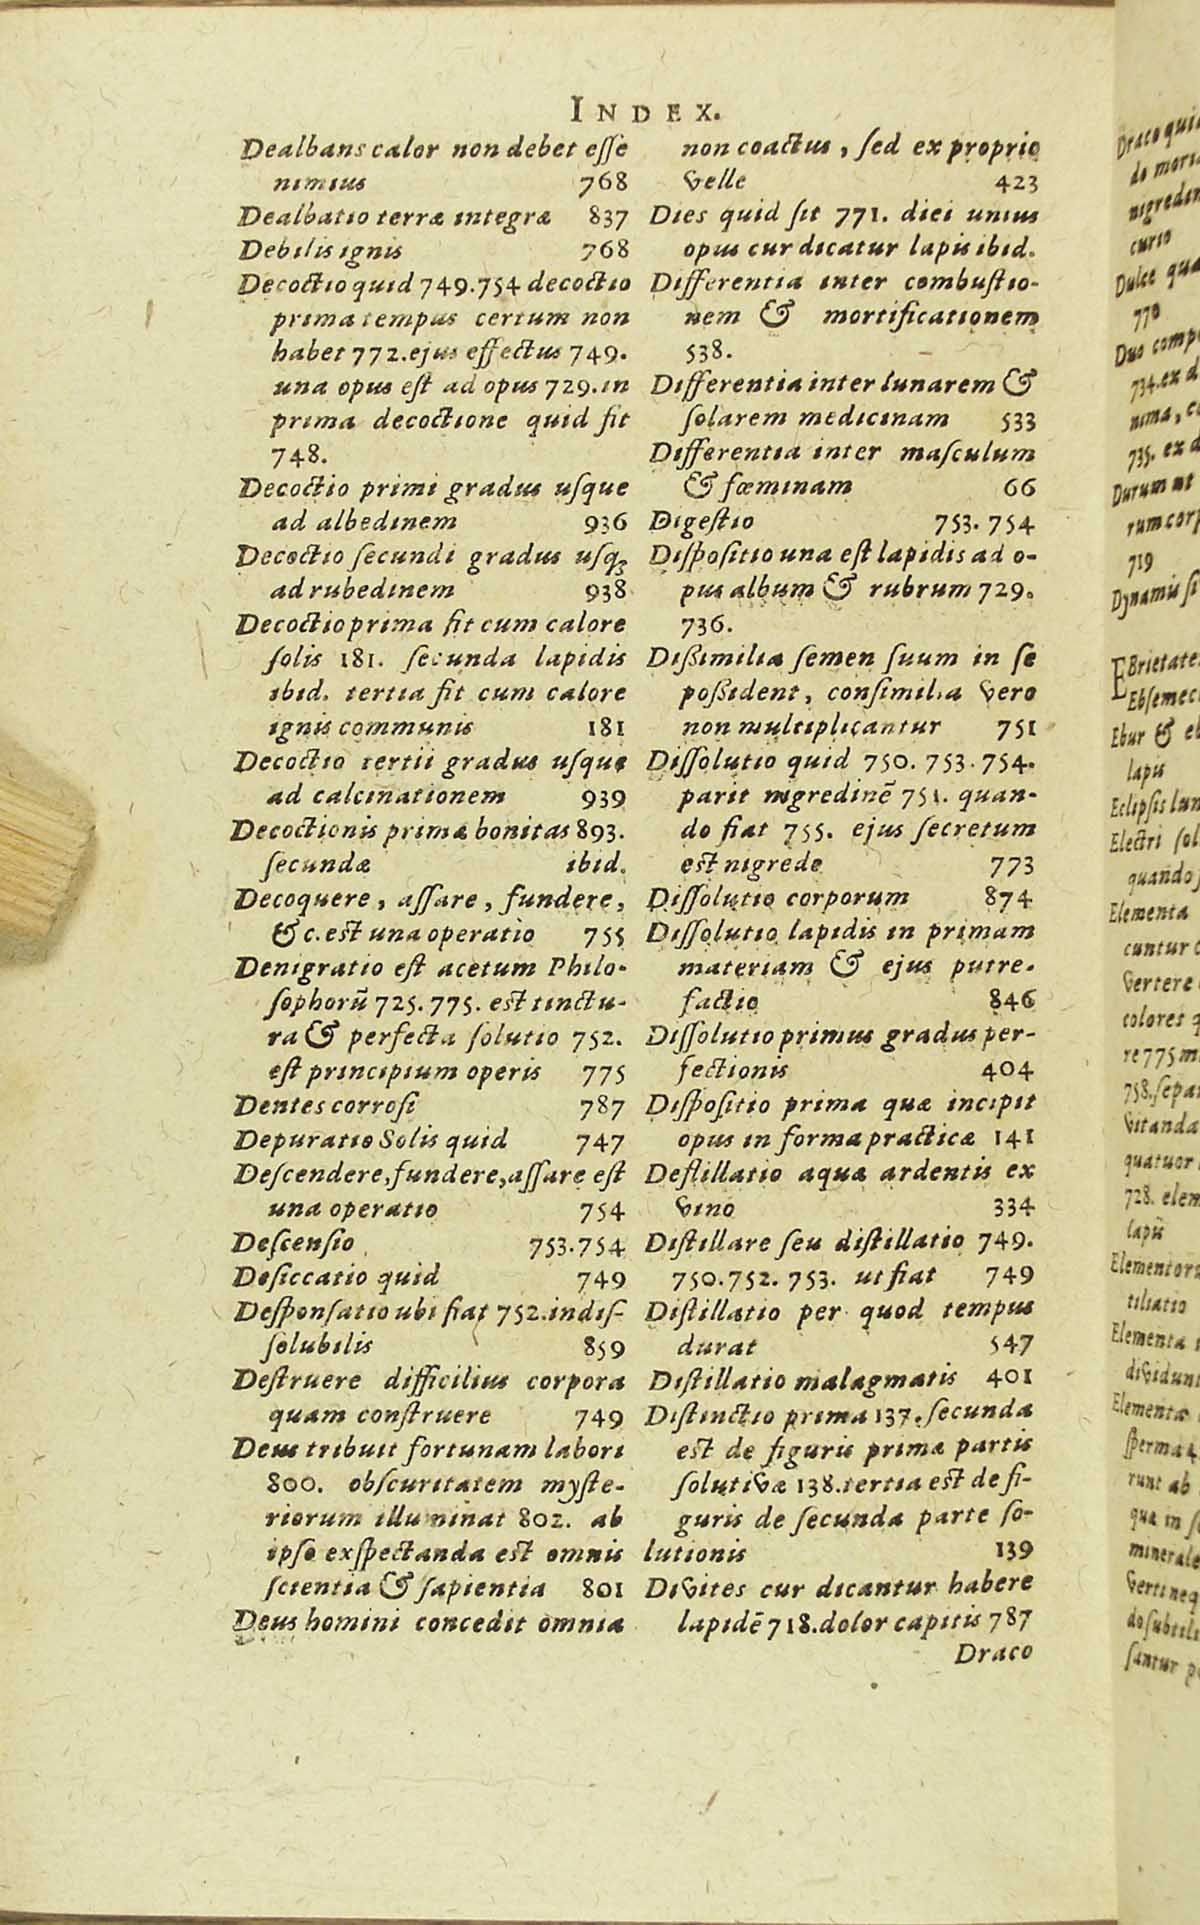 INDEX.
Dealbans calor non debet eſſe
nimius 768
Dealbatio terræ integræ 837
Debilis ignis 768
Decoctio quid 749.754 decoctio
prima tempus certum non
habet 772.ejus effectus 749.
una opus eſt ad opus 729.in
prima decoctione quid fit
748.
Decoctio primi gradus uſque
ad albedinem 936
Decoctio ſecundi gradus uſq;
ad rubedinem 938
Decoctio prima fit cum calore
ſolis 181. ſecunda lapidis
ibid. tertia fit cum calore
ignis communis 181
Decoctio tertii gradus uſque
ad calcinationem 939
Decoctionis primæ bonitas 893.
ſecundæ ibid.
Decoquere, aſſare, fundere,
& c.est una operatio 755
Denigratio eſt acetum Philo-
ſophorũ 725.775. est tinctu-
ra & perfecta ſolutio 752.
eſt principium operis 775
Dentes corroſi 787
Depuratio Solis quid 747
Deſcendere,fundere,aſſare eſt
una operatio 754
Deſcenſio 753.754
Deſiccatio quid 749
Deſponſatio ubi fiat 752.indiſ-
ſolubilis 859
Deſtruere difficilius corpora
quam conſtruere 749
Deus tribuit fortunam labori
800. obſcuritatem myſte-
riorum illuminat 802. ab
ipſo exſpectanda est omnis
ſcientia & ſapientia 801
Deus homini concedit omnia
non coactus, ſed ex proprio
velle 423
Dies quid ſit 771. diei unius
opus cur dicatur lapis ibid.
Differentia inter combuſtio-
nem & mortificationem
538.
Differentia inter lunarem &
ſolarem medicinam 533
Differentia inter maſculum
& fœminam 66
Digeſtio 753. 754
Diſpoſitio una eſt lapidis ad o-
pus album & rubrum 729.
736.
Dißimilia ſemen ſuum in ſe
poßident, conſimilia vero
non multiplicantur 751
Diſſolutio quid 750. 753.754.
parit nigredinẽ 751. quan-
do fiat 755. ejus ſecretum
est nigredo 773
Diſſolutio corporum 874
Diſſolutio lapidis in primam
materiam & ejus putre-
factio 846
Diſſolutio primus gradus per-
fectionis 404
Diſpoſitio prima quæ incipit
opus in forma practicæ 141
Deſtillatio aquæ ardentis ex
vino 334
Diſtillare ſeu diſtillatio 749.
750.752. 753. ut fiat 749
Diſtillatio per quod tempus
durat 547
Diſtillatio malagmatis 401
Diſtinctio prima 137. ſecunda
est de figuris primæ partis
ſolutivæ 138.tertia est de fi-
guris de ſecunda parte ſo-
lutionis 139
Divites cur dicantur habere
lapidẽ 718.dolor capitis 787
Draco
Draco
nigredin
curio
Dulce
770
Duo comp
734.ex
735. ex
Durum ut
rum corp
719
Dynamis
EBrietate
Ebſemec
Ebur &
lapis
Eclipſis lun
Electri ſol
quando
Elementa
cuntur
vertere
colores
re 775
758.ſepar
vitanda
quatuor
728. elem
Elementoru
Elementa
dividunt
Elementa
ſperma
runt ab
quæ in
minerale
verti neq
do ſubtili
ſantur